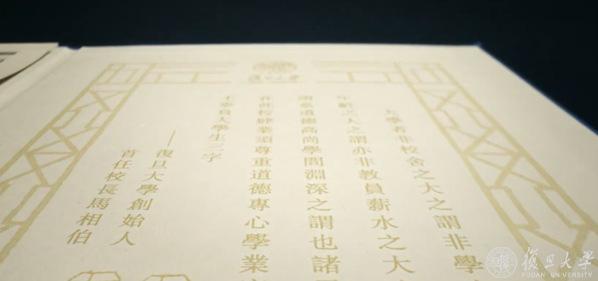 復旦大學
大學者非校舍之大之謂非學
年齡之大之謂亦非教員薪水之大
謂係道德高尚學問淵深之謂也諸
在此校肄業須尊重道德專心學業
不辜負大學生三字
——復旦大學創始人
首任校長馬相伯
復旦大學
FUDAN UNIVERSITY